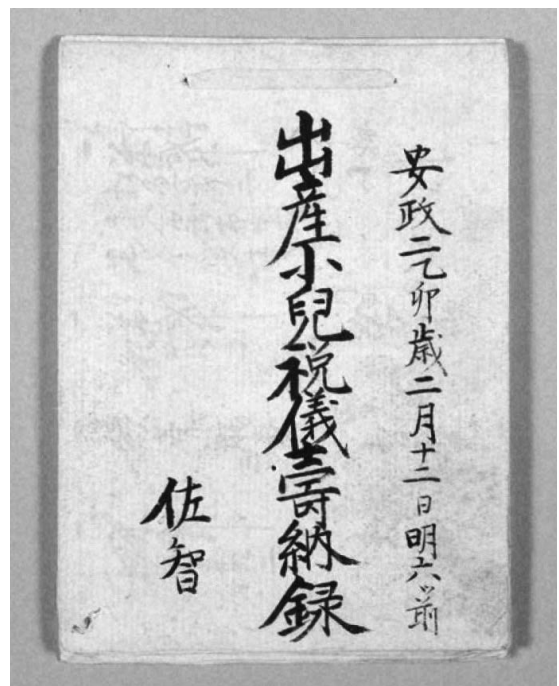 安政二乙卯歳二月十二日明六ツ前
出産小兒祝儀壽納録
佐智